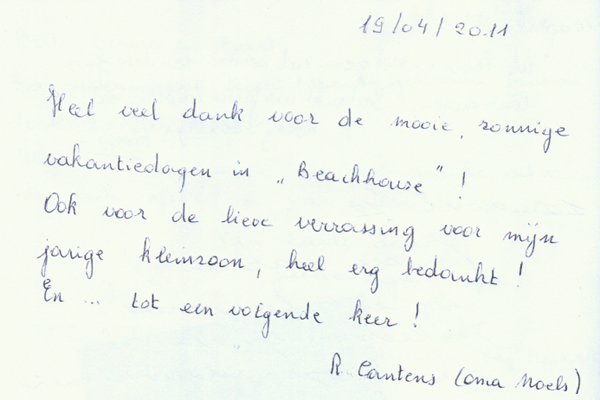 19/04/2011
Heel veel dank voor de mooie, zonnige
vakantiedagen in „Beachhouse" !
Ook voor de lieve verrassing voor mijn
jarige kleinzoon, heel erg bedankt !
En ... tot een volgende keer !
R. Cantens (oma Noels)